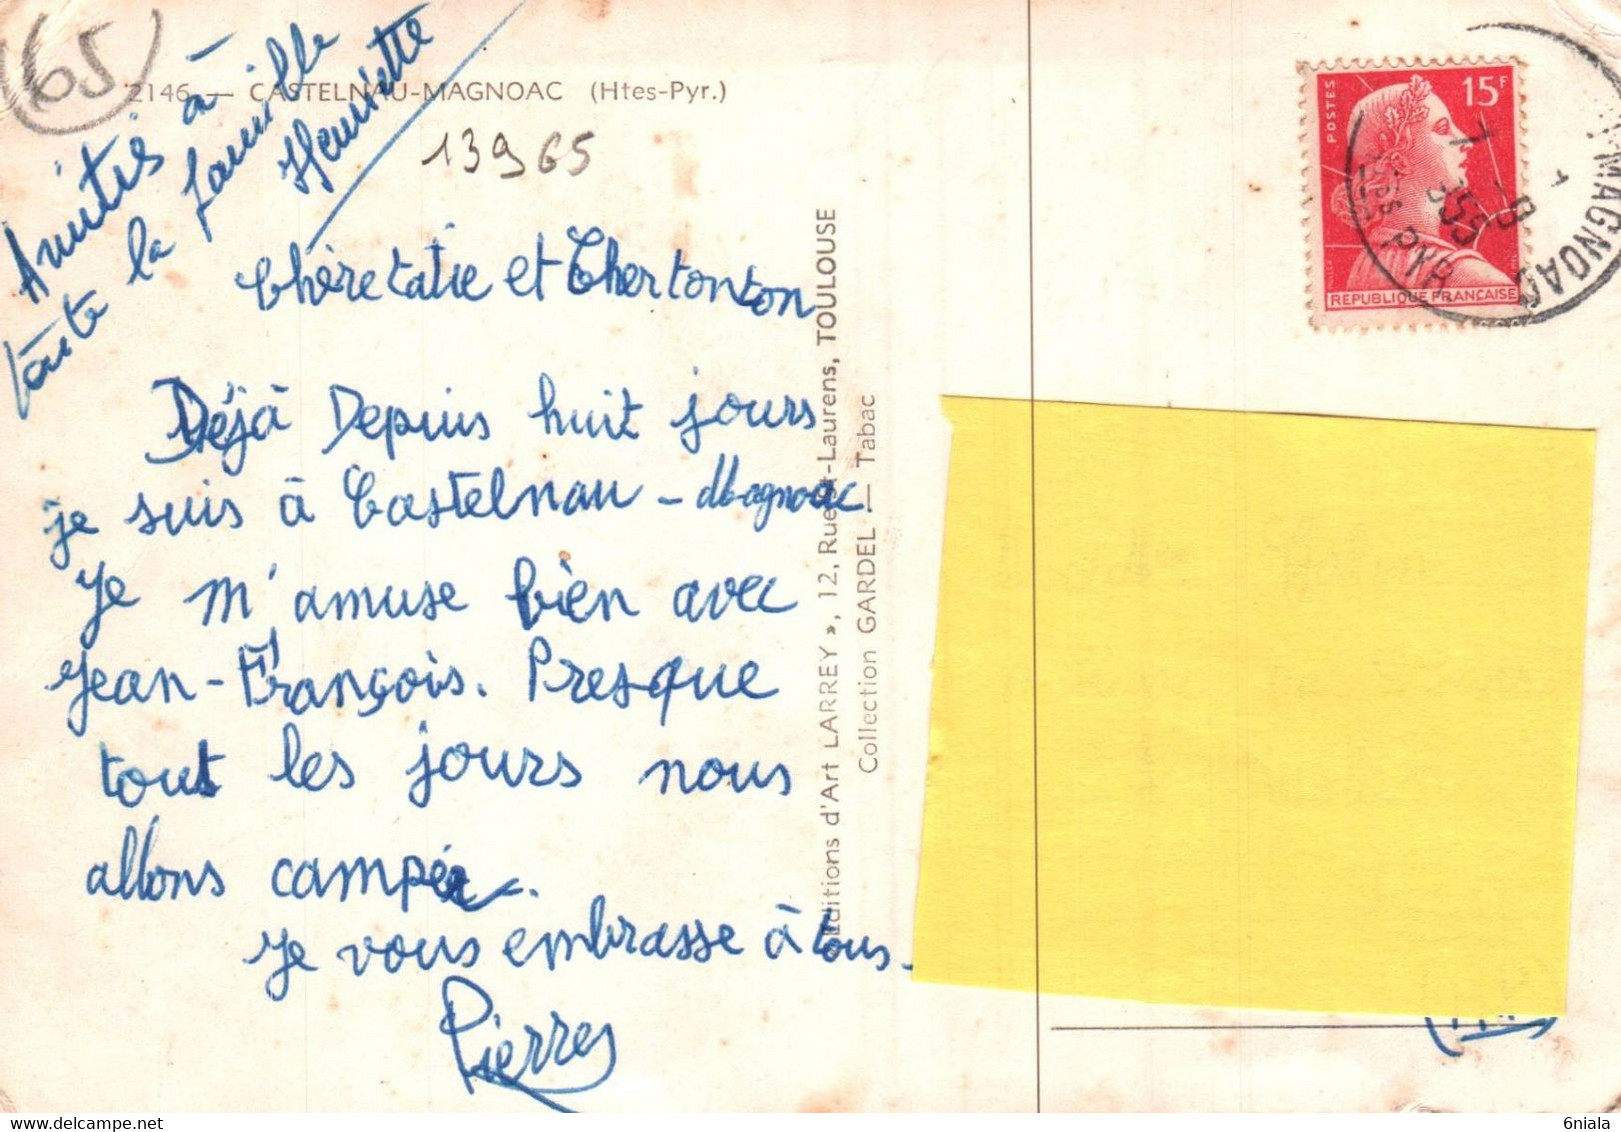 65
2146 — CASTELNAU-MAGNOAC (Htes-Pyr.)
13965
Amitiés à
toute la famille
Henriette
Chère tatie et Cher tonton
Déjà Depuis huit jours
je suis à Castelnau-Magnoac
Je m'amuse bien avec
Jean-François. Presque
tout les jours nous
allons camper.
Je vous embrasse à tous.
Pierre
Editions d'Art LARREY », 12, Rue St-Laurens, TOULOUSE
Collection GARDEL — Tabac
POSTES
15F
REPUBLIQUE FRANÇAISE
MAGNOAC
Htes PYR
6niala